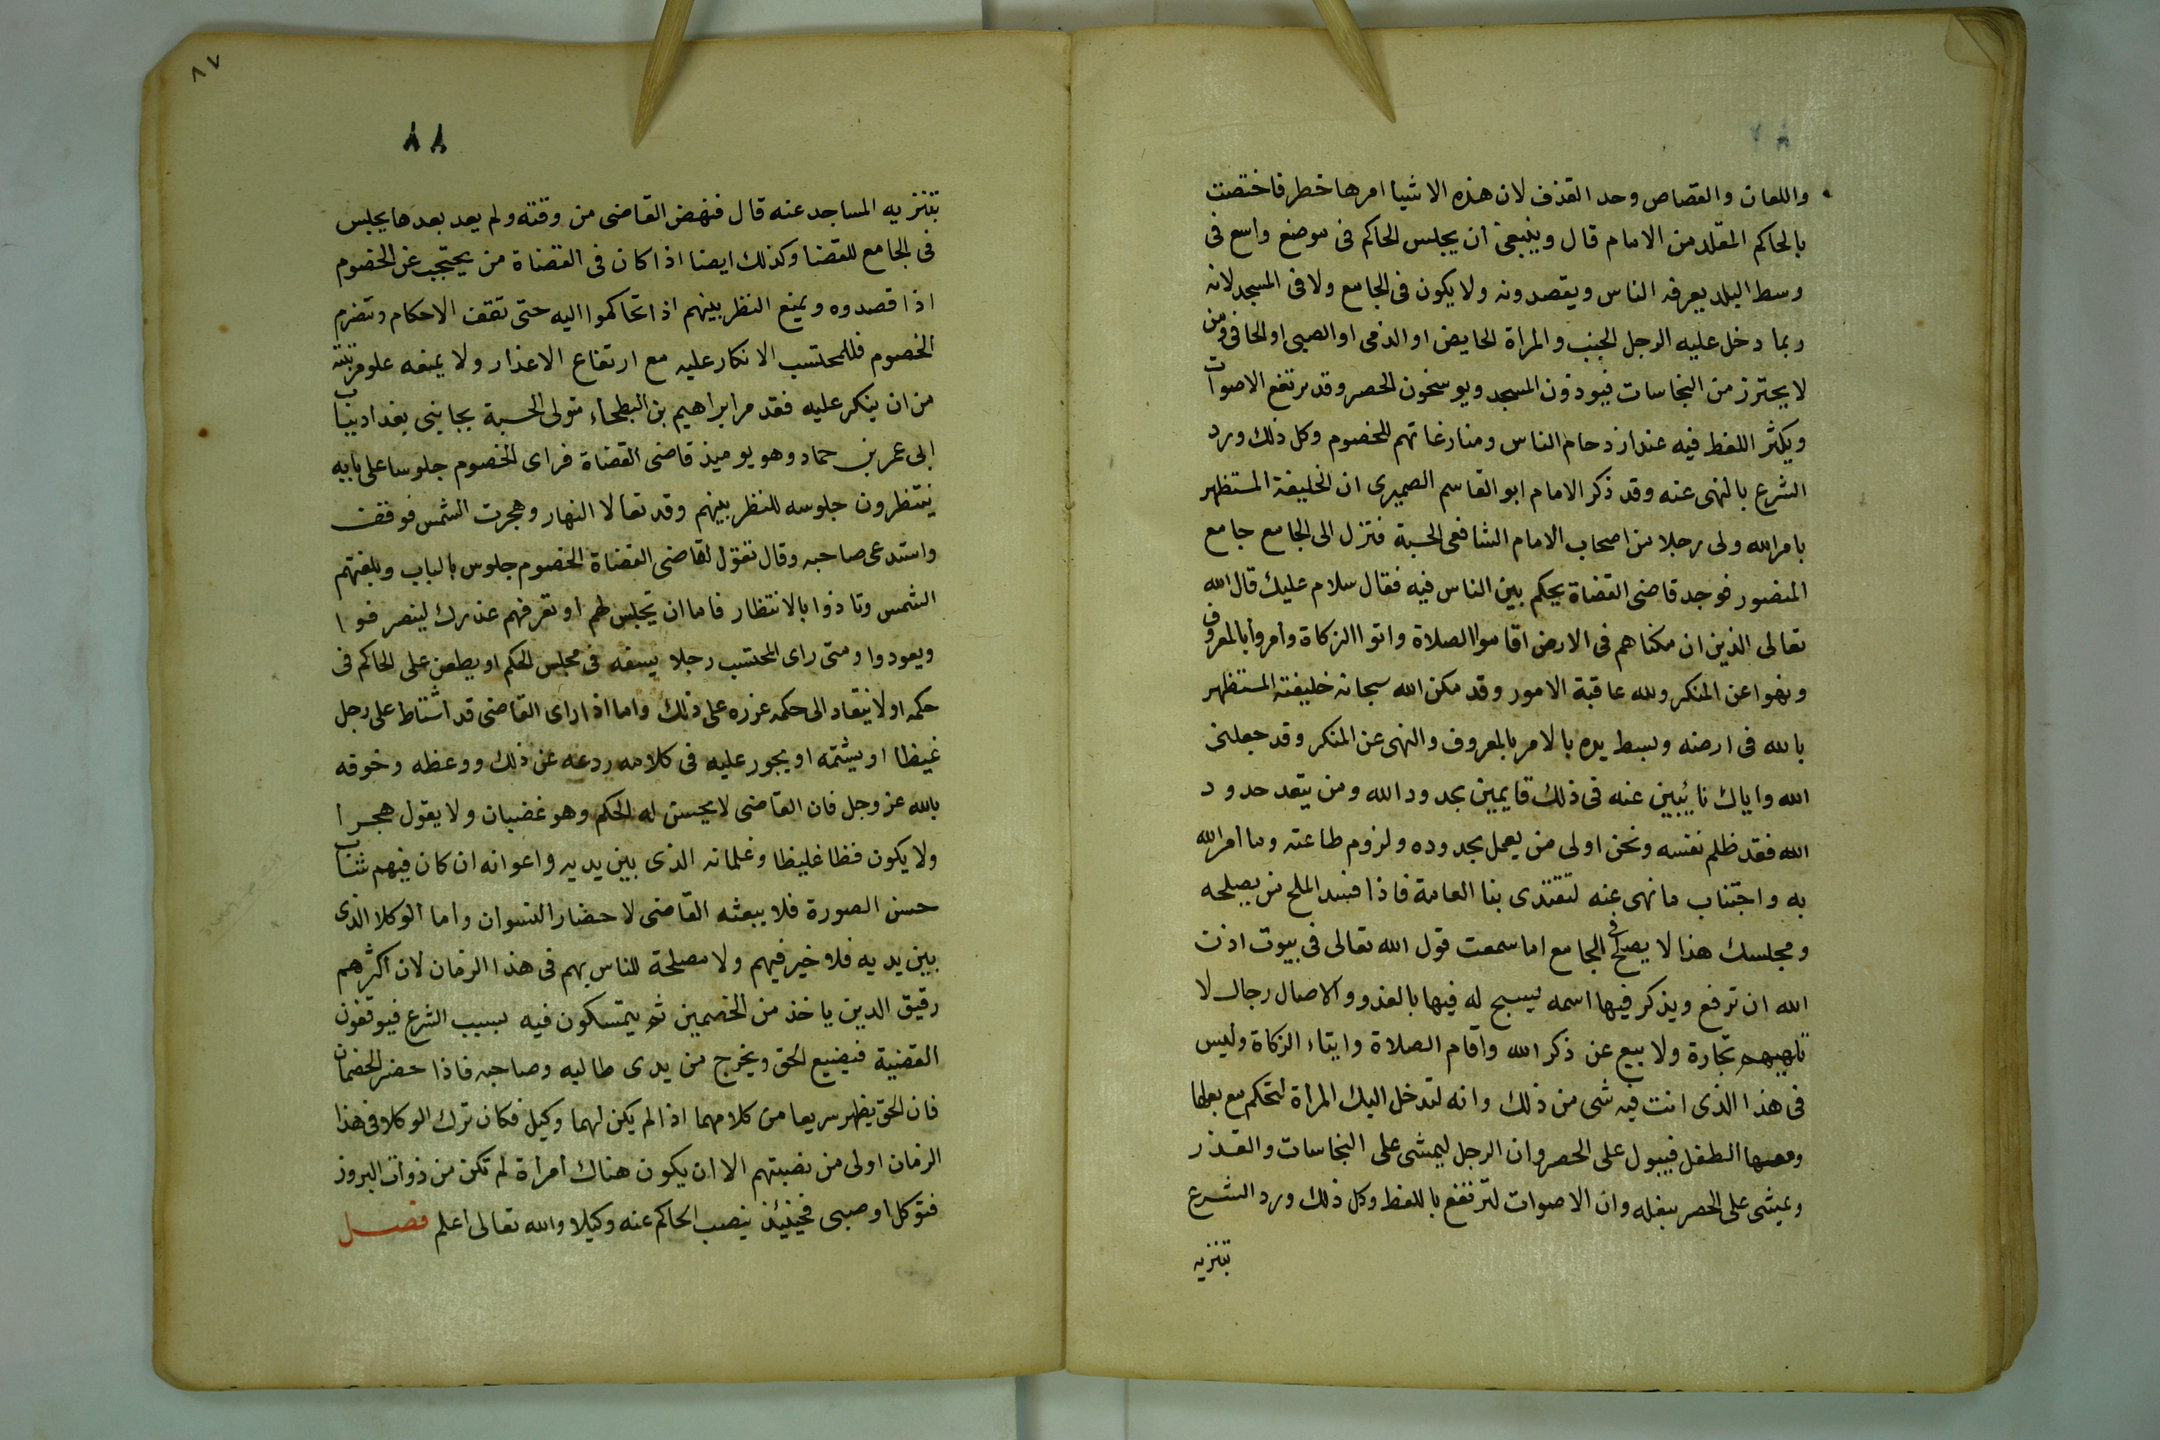 واللعان والقصاص وحد القذف لان هذه الاشيا امرها خطر فاختصت
بالحاكم المقلد من الامام قال وينبغى ان يجلس الحاكم فى موضع واسع فى
وسط البلد يعرفه الناس ويقصدونه ولا يكون فى الجامع ولا فى المسجد لانه
ربما دخل عليه الرجل الجنب والمراة الحايض او الذمى او الصبى او الحافى ومن
لا يحترز من النجاسات فيوذون المسجد ويوسخون الحصر وقد ترتفع الاصوات
ويكثر اللغط فيه عند ازدحام الناس ومنازعاتهم للخصوم وكل ذلك ورد
الشرع بالنهى عنه وقد ذكر الامام ابو القاسم الصميرى ان الخليفة المستظهر
بامرالله ولى رجلا من اصحاب الامام الشافعى الحسبة فنزل الى الجامع جامع
المنصور فوجد قاضى القضاة يحكم بين الناس فيه فقال سلام عليك قال الله
تعالى الذين ان مكناهم فى الارض اقاموا الصلاة واتوا الزكاة وأمروا بالمعروف
ونهوا عن المنكر ولله عاقبة الامور وقد مكن الله سبحانه خليفته المستظهر
بالله فى ارضه وبسط يده بالامر بالمعروف والنهى عن المنكر وقد جعلنى
الله واياك نائبين عنه فى ذلك قايمين بحدود الله ومن يتعد حدود
الله فقد ظلم نفسه ونحن اولى من يعمل بحدوده ولزوم طاعته وما امرالله
به واجتناب ما نهى عنه لتقتدى بنا العامة فاذا فسد الملح من يصلحه
ومجلسك هذا لا يصلح فى الجامع اما سمعت قول الله تعالى فى بيوت اذن
الله ان ترفع ويذكر فيها اسمه يسبح له فيها بالغدو والاصال رجال لا
تلهيهم تجارة ولا بيع عن ذكر الله واقام الصلاة وايتاء الزكاة وليس
فى هذا الذى انت فيه شى من ذلك وانه لتدخل اليك المرأة لتحكم مع بعلها
ومعها الطفل فيبول على الحصر وان الرجل ليمشى على النجاسات والقذر
ويمشى على الحصر بنعله وان الاصوات لترتفع باللغط وكل ذلك ورد الشرع
تنزيه
٨٧
٨٨
بتنزيه المساجد عنه قال فنهض القاضى من وقته ولم يعد بعدها يجلس
فى الجامع للقضا وكذلك ايضا اذا كان فى القضاة من يحتجب عن الخصوم
اذا قصدوه ويمنع النظر بينهم اذا تحاكموا اليه حتى تقف الاحكام وتضرم
الخصوم فللمحتسب الانكار عليه مع ارتفاع الاعذار ولا يمنعه علو مرتبته
من ان ينكر عليه فقد مر ابراهيم بن البطحاء متولى الحسبة بجانبى بغداد بباب
ابى عمر بن حماد وهو يوميذ قاضى القضاة فراى الخصوم جلوسا على بابه
ينتظرون جلوسه للنظر بينهم وقد تعالا النهار وهجرت الشمس فوقف
واستدعى صاحبه وقال تقول لقاضى القضاة الخصوم جلوس بالباب وبلغتهم
الشمس وتاذوا بالانتظار فاما ان تجلس لهم او تعرفهم عذرك لينصرفوا
ويعودوا ومتى راى المحتسب رجلا يسفه فى مجلس الحكم او يطعن على الحاكم فى
حكمه او لا ينقاد الى حكمه عزره على ذلك واما اذا راى القاضى قد استشاط على رجل
غيظا او يشتمه او يجور عليه فى كلامه ردعه عن ذلك ووعظه وخوفه
بالله عز وجل فان القاضى لا يحسن له الحكم وهو غضبان ولا يقول هجرا
ولا يكون فظا غليظا وغلمانه الذى بين يديه واعوانه ان كان فيهم شاب
حسن الصورة فلا يبعثه القاضى لاحضار النسوان واما الوكلا الذى
بين يديه فلا خير فيهم ولا مصلحة للناس بهم فى هذا الزمان لان اكثرهم
رقيق الدين ياخذ من الخصمين ثم يتمسكون فيه بسبب الشرع فيوقفون
القضية فيضيع الحق ويخرج من يدى طالبه وصاحبه فاذا حضر الخصمان
فان الحق يظهر سريعا من كلامهما اذا لم يكن لهما وكيل فكان ترك الوكلا فى هذا
الزمان اولى من نصبتهم الا ان يكون هناك امرأة لم تكن من ذوات البروز
فتوكل او صبى فحينئذ ينصب الحاكم عنه وكيلا والله تعالى اعلم فصل